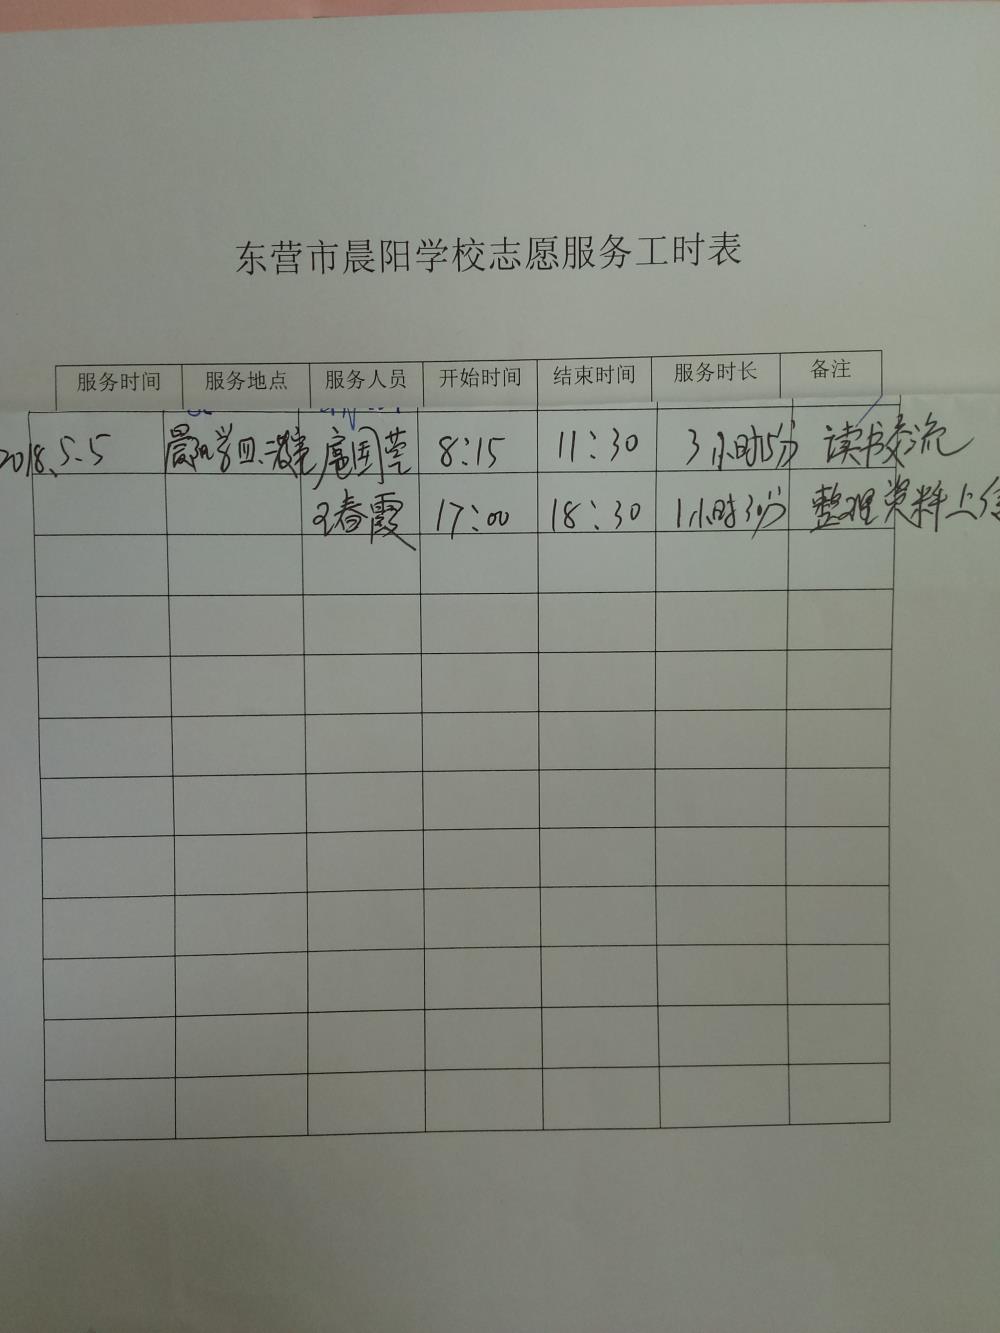 东营市晨阳学校志愿服务工时表
服务时间 服务地点 服务人员 开始时间 结束时间 服务时长 备注
2018.5.5 晨阳学四.一教室 扈国莹 8:15 11:30 3小时15分 读书交流
王春霞 17:00 18:30 1小时30分 整理资料上传